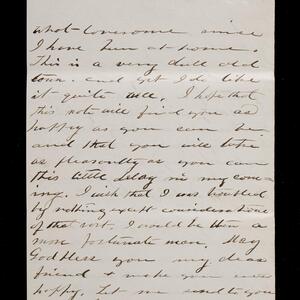 what lonesome since
I have been at home.
This is a very dull old
town. and yet I do like
it quite well. I hope that
this note will find you as
happy as you can be
and that you will take
as pleasantly as you can
this little delay in my com-
ing. I wish that I was troubled
by nothing except considerations
of that sort. I would be then a
more fortunate man. May
God bless you my dear
friend & make you ever
happy. Let me send to you